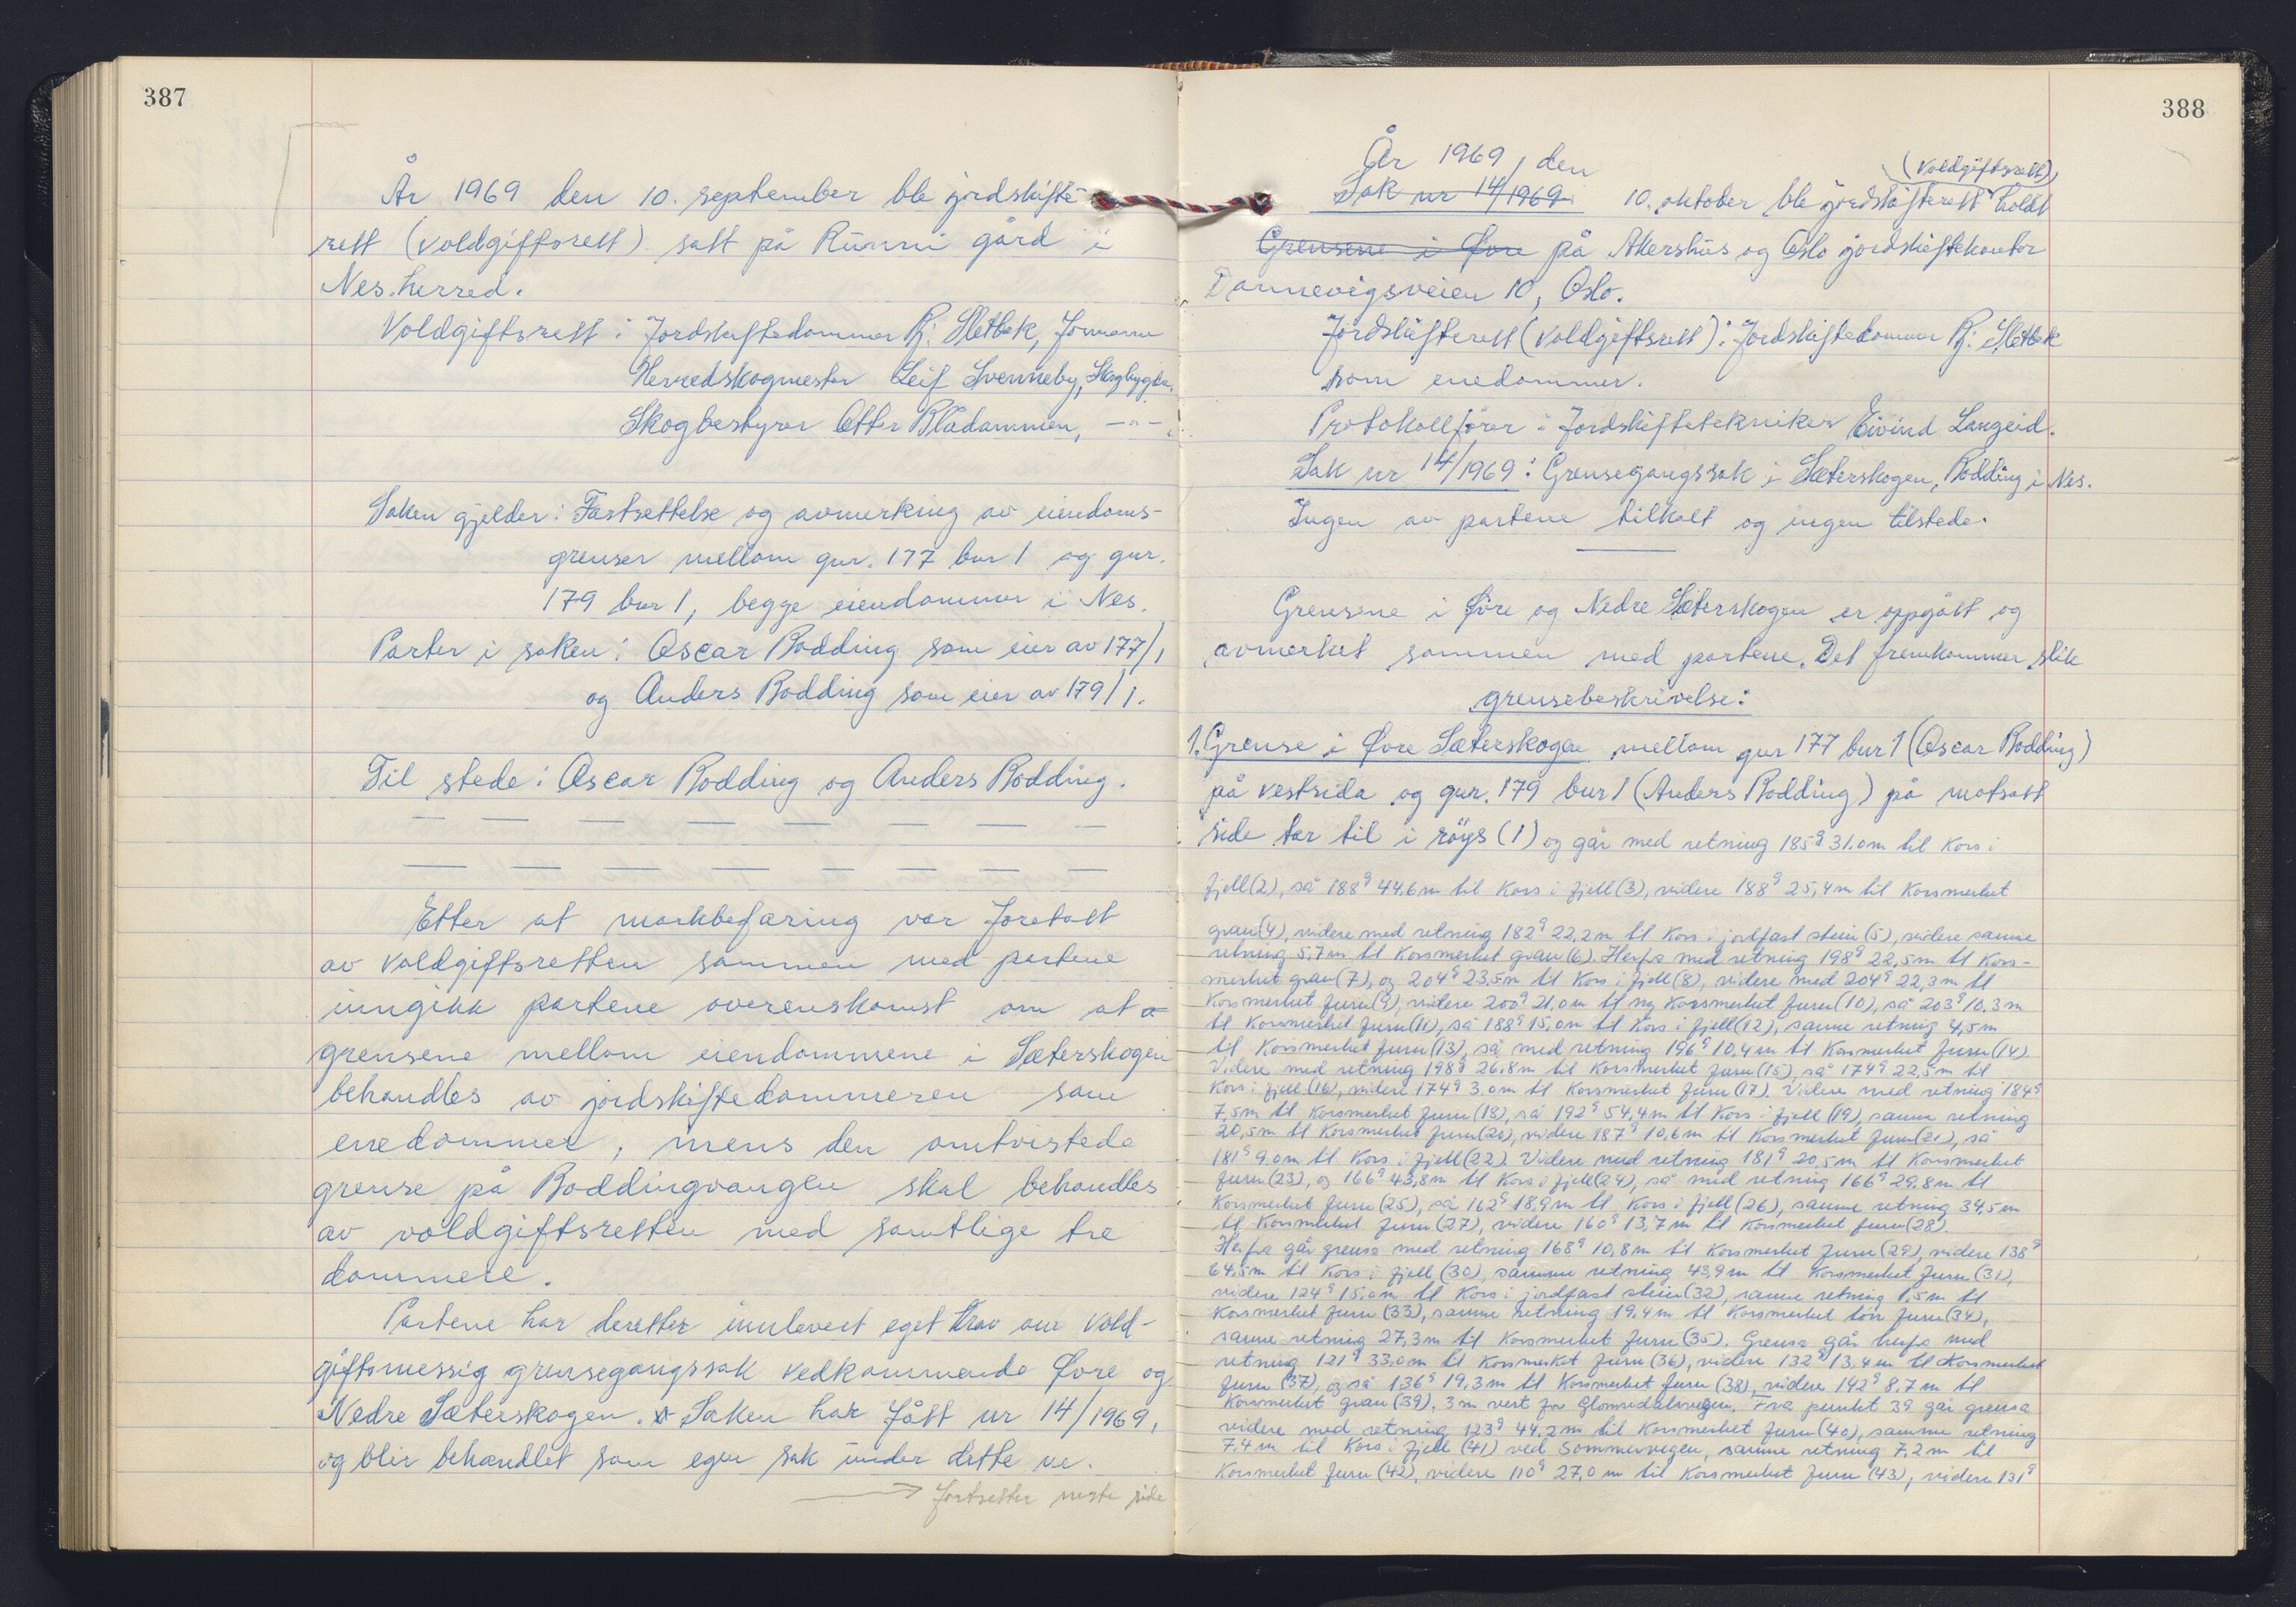 387
År 1969 den 10. september ble jordskifte-
rett (voldgiftsrett) satt på Runni gård i
Nes herred.
Voldgiftsrett: Jordskiftedommer Rj: Sletbak, formann
Herredskogmester Leif Svenneby, Skogbygda.
Skogbestyrer Otter Blådammen, —"—
Saken gjelder: Fastsettelse og avmerking av eiendoms-
grenser mellom gnr. 177 bnr 1 og gnr.
179 bnr 1, begge eiendommer i Nes.
Parter i saken: Oscar Rodding som eier av 177/1
og Anders Rodding som eier av 179/1.
Til stede: Oscar Rodding og Anders Rodding.
Etter at markbefaring var foretatt
av voldgiftsretten sammen med partene
inngikk partene overenskomst om at
grensene mellom eiendommene i Sæterskogen
behandles av jordskiftedommeren som
enedommer, mens den omtvistede
grense på Roddingvangen skal behandles
av voldgiftsretten med samtlige tre
dommere.
Partene har deretter innlevert eget krav om vold-
giftsmessig grensegangssak vedkommende Øvre og
Nedre Sæterskogen. Saken har fått nr 14/1969,
og blir behandlet som egen sak under dette nr.
→ fortsetter neste side
388
År 1969, den
Sak nr 14/1969. 10. oktober ble jordskifterett (voldgiftsrett) holdt
Grensene i Øvre på Akershus og Oslo jordskiftekontor
Dannevigsveien 10, Oslo.
Jordskifterett (voldgiftsrett): Jordskiftedommer Rj: Sletbak
som enedommer.
Protokollfører: Jordskiftetekniker Eivind Langeid.
Sak nr 14/1969: Grensegangssak i Sæterskogen, Rodding i Nes.
Ingen av partene tilkalt og ingen tilstede.
Grensene i Øvre og Nedre Sæterskogen er oppgått og
avmerket sammen med partene. Det fremkommer slik
grensebeskrivelse:
1. Grense i Øvre Sæterskogen mellom gnr 177 bnr 1 (Oscar Rodding)
på vestsida og gnr. 179 bnr 1 (Anders Rodding) på motsatt
side tar til i røys (1) og går med retning 185g 31.0m til Kors i
fjell (2), så 188g 44.6m til Kors i fjell (3), videre 188g 25,4m til Korsmerket
gran (4), videre med retning 182g 22,2m til Kors i jordfast stein (5), videre samme
retning 5.7m til Korsmerket gran (6). Herfra med retning 198g 22,5m til Kors-
merket gran (7), og 204g 23.5m til Kors i fjell (8), videre med 204g 22,3m til
Korsmerket furu (9), videre 200g 21,0m til ny Korsmerket furu (10), så 203g 10.3m
til Korsmerket furu (11), så 188g 15,0m til Kors i fjell (12), samme retning 4,5m
til Korsmerket furu (13), så med retning 196g 10.4m til Korsmerket furu (14)
Videre med retning 198g 26.8m til Korsmerket furu (15), så 174g 22,5m til
Kors i fjell (16), videre 174g 3.0m til Korsmerket furu (17). Videre med retning 184g
7,5m til Korsmerket furu (18), så 192g 54,4m til Kors i fjell (19), samme retning
20,5m til Korsmerket furu (20), videre 187g 10,6m til Korsmerket furu (21), så
181g 9.0m til Kors i fjell (22). Videre med retning 181g 20,5m til Korsmerket
furu (23), og 166g 43,8m til Kors i fjell (24), så med retning 166g 29.8m til
Korsmerket furu (25), så 162g 18,9m til Kors i fjell (26), samme retning 34,5m
til Korsmerket furu (27), videre 160g 13,7m til Korsmerket furu (28).
Herfra går grensa med retning 168g 10,8m til Korsmerket furu (29), videre 138g
64,5m til Kors i fjell (30), samme retning 43,9m til Korsmerket furu (31),
videre 124g 15,0m til Kors i jordfast stein (32), samme retning 1,5m til
Korsmerket furu (33), samme retning 19.4m til Korsmerket tørr furu (34),
samme retning 27,3m til Korsmerket furu (35). Grensa går herfra med
retning 121g 33,0m til Korsmerket furu (36), videre 132g 13,4m til Korsmerket
furu (37), og så 136g 19,3m til Korsmerket furu (38), videre 142g 8,7m til
Korsmerket gran (39), 3m vest for Glomsdalsvegen. Fra punkt 39 går grensa
videre med retning 123g 44,2m til Korsmerket furu (40), samme retning
7.4m til Kors i fjell (41) ved Sommervegen, samme retning 7,2m til
Korsmerket furu (42), videre 110g 27,0m til Korsmerket furu (43), videre 131g